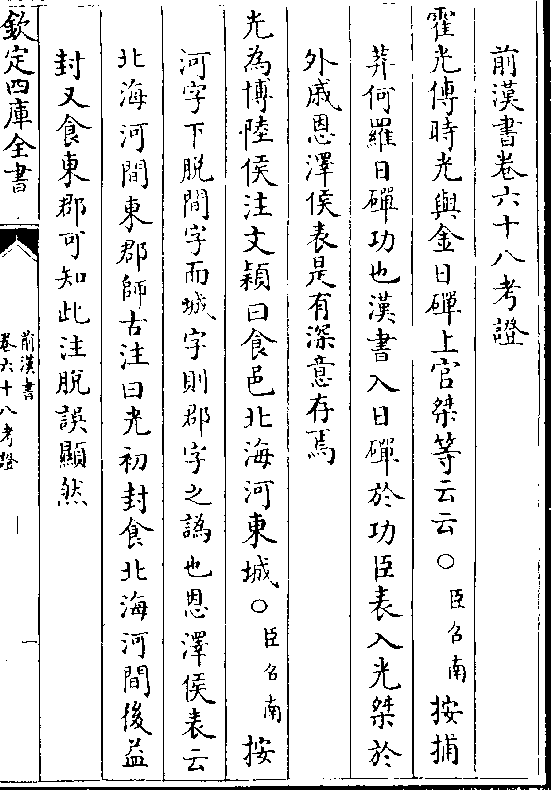 前漢書卷六十八考證
霍光傳時光與金日磾上官桀等云云○臣召南按捕
莽何羅日磾功也漢書入日磾於功臣表入光桀於
外戚恩澤侯表是有深意存焉
光為博陸侯注文穎曰食邑北海河東城○臣召南按
河字下脫間字而城字則郡字之譌也恩澤侯表云
北海河間東郡師古注曰光初封食北海河間後益
封又食東郡可知此注脫誤顯然
欽定四庫全書
前漢書
卷六十八考證
一